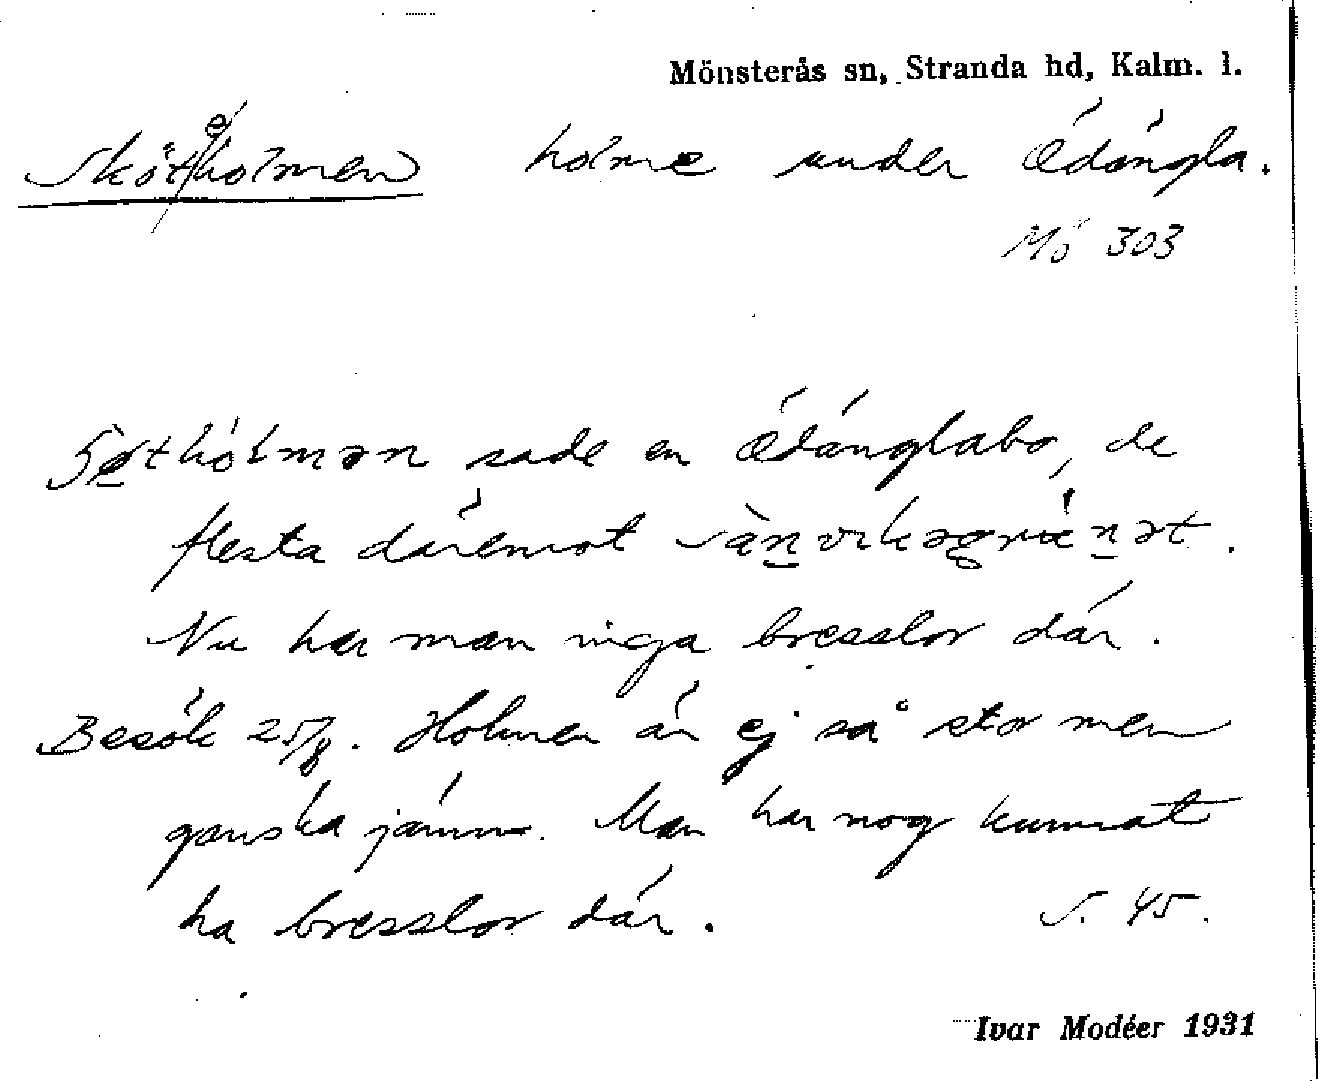 Mönsterås sn, Stranda hd, Kalm. l.
Skötholmen holme under Ödängla.
Mö 303
sade en Ödänglabo, de
flesta däremot
Nu har man inga bresslor där.
Besök 25/8. Holmen är ej så stor men
ganska jämn. Man har nog kunnat
ha bresslor där. S. 45.
Ivar Modéer 1931